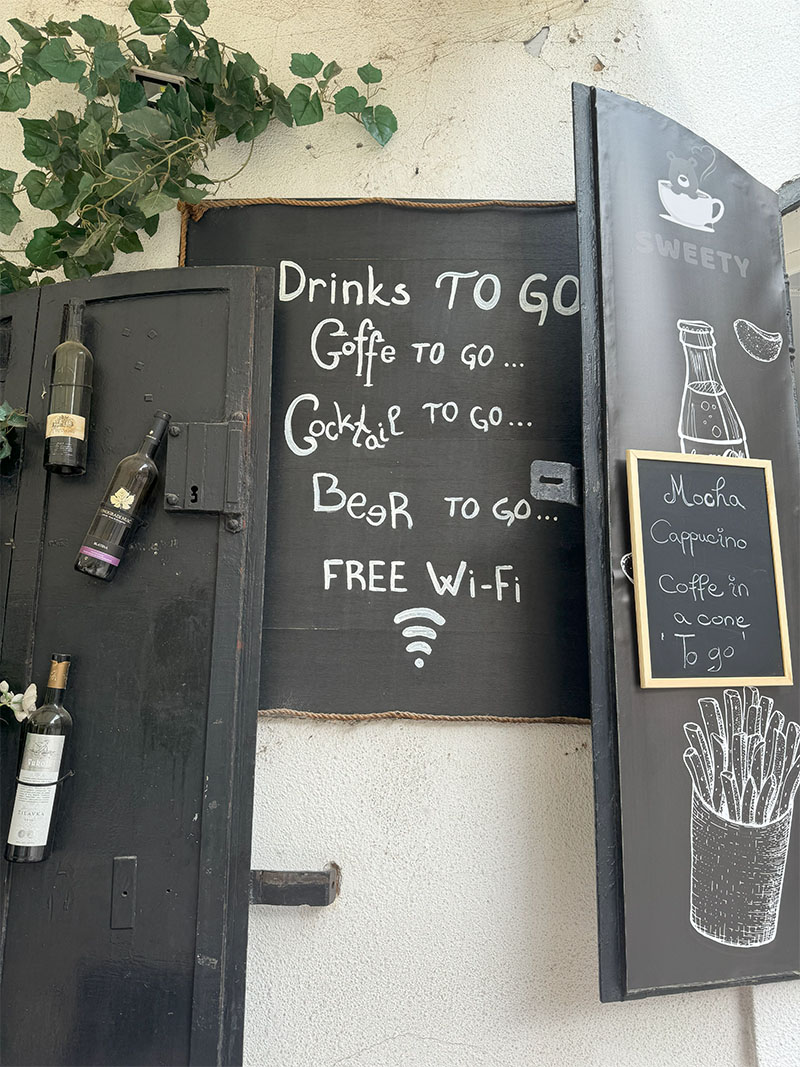 Drinks TO GO
Coffe TO GO ...
Cocktail TO GO...
BeeR TO GO...
FREE Wi-Fi
SWEETY
Mocha
Cappucino
Coffe in
a cone
'To go'
BLATINA
ŽILAVKA